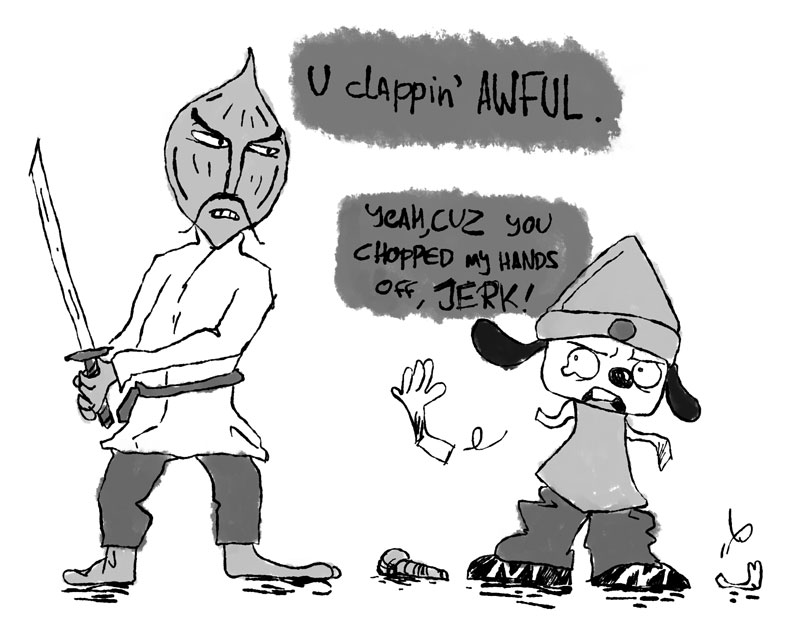 U clappin' AWFUL.
YEAH, CUZ YOU
CHOPPED MY HANDS
OFF, JERK!